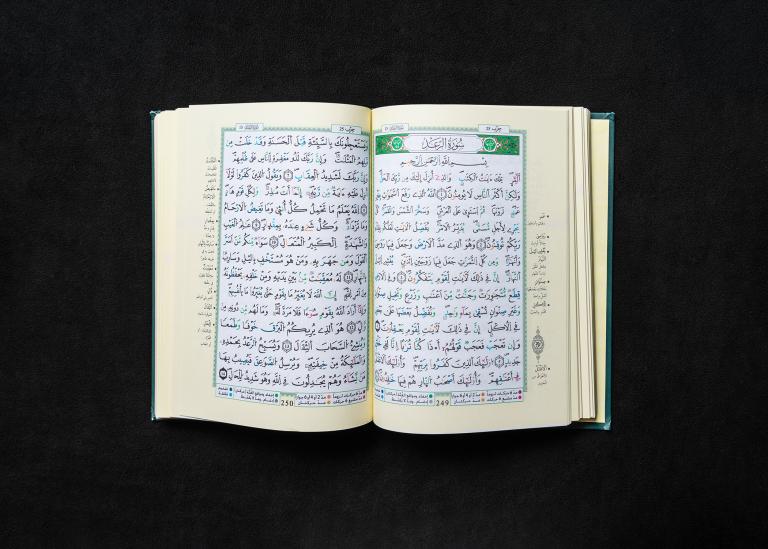 حزب ٢٥
سُورَةُ الرَّعْدِ
بِسْمِ اللَّهِ الرَّحْمَٰنِ الرَّحِيمِ
الٓمٓر ۚ تِلْكَ ءَايَٰتُ الْكِتَٰبِ ۗ وَالَّذِىٓ أُنزِلَ إِلَيْكَ مِن رَّبِّكَ الْحَقُّ
وَلَٰكِنَّ أَكْثَرَ النَّاسِ لَا يُؤْمِنُونَ ۝١ اللَّهُ الَّذِى رَفَعَ السَّمَٰوَٰتِ بِغَيْرِ
عَمَدٍ تَرَوْنَهَا ۖ ثُمَّ اسْتَوَىٰ عَلَى الْعَرْشِ ۖ وَسَخَّرَ الشَّمْسَ وَالْقَمَرَ ۖ كُلٌّ
يَجْرِى لِأَجَلٍ مُّسَمًّى ۚ يُدَبِّرُ الْأَمْرَ يُفَصِّلُ الْءَايَٰتِ لَعَلَّكُم بِلِقَآءِ
رَبِّكُمْ تُوقِنُونَ ۝٢ وَهُوَ الَّذِى مَدَّ الْأَرْضَ وَجَعَلَ فِيهَا رَوَٰسِىَ
وَأَنْهَٰرًا ۖ وَمِن كُلِّ الثَّمَرَٰتِ جَعَلَ فِيهَا زَوْجَيْنِ اثْنَيْنِ ۖ يُغْشِى الَّيْلَ
النَّهَارَ ۚ إِنَّ فِى ذَٰلِكَ لَءَايَٰتٍ لِّقَوْمٍ يَتَفَكَّرُونَ ۝٣ وَفِى الْأَرْضِ
قِطَعٌ مُّتَجَٰوِرَٰتٌ وَجَنَّٰتٌ مِّنْ أَعْنَٰبٍ وَزَرْعٌ وَنَخِيلٌ صِنْوَانٌ
وَغَيْرُ صِنْوَانٍ يُسْقَىٰ بِمَآءٍ وَٰحِدٍ وَنُفَضِّلُ بَعْضَهَا عَلَىٰ بَعْضٍ
فِى الْأُكُلِ ۚ إِنَّ فِى ذَٰلِكَ لَءَايَٰتٍ لِّقَوْمٍ يَعْقِلُونَ ۝٤
وَإِن تَعْجَبْ فَعَجَبٌ قَوْلُهُمْ أَءِذَا كُنَّا تُرَٰبًا أَءِنَّا لَفِى خَلْقٍ
جَدِيدٍ ۗ أُو۟لَٰٓئِكَ الَّذِينَ كَفَرُوا۟ بِرَبِّهِمْ ۖ وَأُو۟لَٰٓئِكَ الْأَغْلَٰلُ
فِىٓ أَعْنَاقِهِمْ ۖ وَأُو۟لَٰٓئِكَ أَصْحَٰبُ النَّارِ ۖ هُمْ فِيهَا خَٰلِدُونَ ۝٥
249
حزب ٢٥
وَيَسْتَعْجِلُونَكَ بِالسَّيِّئَةِ قَبْلَ الْحَسَنَةِ وَقَدْ خَلَتْ مِن
قَبْلِهِمُ الْمَثُلَٰتُ ۗ وَإِنَّ رَبَّكَ لَذُو مَغْفِرَةٍ لِّلنَّاسِ عَلَىٰ ظُلْمِهِمْ ۖ
وَإِنَّ رَبَّكَ لَشَدِيدُ الْعِقَابِ ۝٦ وَيَقُولُ الَّذِينَ كَفَرُوا۟ لَوْلَآ
أُنزِلَ عَلَيْهِ ءَايَةٌ مِّن رَّبِّهِۦٓ ۗ إِنَّمَآ أَنتَ مُنذِرٌ ۖ وَلِكُلِّ قَوْمٍ هَادٍ ۝٧
اللَّهُ يَعْلَمُ مَا تَحْمِلُ كُلُّ أُنثَىٰ وَمَا تَغِيضُ الْأَرْحَامُ
وَمَا تَزْدَادُ ۖ وَكُلُّ شَىْءٍ عِندَهُۥ بِمِقْدَارٍ ۝٨ عَٰلِمُ الْغَيْبِ
وَالشَّهَٰدَةِ الْكَبِيرُ الْمُتَعَالِ ۝٩ سَوَآءٌ مِّنكُم مَّنْ أَسَرَّ
الْقَوْلَ وَمَن جَهَرَ بِهِۦ وَمَنْ هُوَ مُسْتَخْفٍۭ بِالَّيْلِ وَسَارِبٌۢ
بِالنَّهَارِ ۝١٠ لَهُۥ مُعَقِّبَٰتٌ مِّنۢ بَيْنِ يَدَيْهِ وَمِنْ خَلْفِهِۦ يَحْفَظُونَهُۥ
مِنْ أَمْرِ اللَّهِ ۗ إِنَّ اللَّهَ لَا يُغَيِّرُ مَا بِقَوْمٍ حَتَّىٰ يُغَيِّرُوا۟ مَا بِأَنفُسِهِمْ ۗ
وَإِذَآ أَرَادَ اللَّهُ بِقَوْمٍ سُوٓءًا فَلَا مَرَدَّ لَهُۥ ۚ وَمَا لَهُم مِّن دُونِهِۦ مِن
وَالٍ ۝١١ هُوَ الَّذِى يُرِيكُمُ الْبَرْقَ خَوْفًا وَطَمَعًا
وَيُنشِئُ السَّحَابَ الثِّقَالَ ۝١٢ وَيُسَبِّحُ الرَّعْدُ بِحَمْدِهِۦ
وَالْمَلَٰٓئِكَةُ مِنْ خِيفَتِهِۦ وَيُرْسِلُ الصَّوَٰعِقَ فَيُصِيبُ بِهَا
مَن يَشَآءُ وَهُمْ يُجَٰدِلُونَ فِى اللَّهِ وَهُوَ شَدِيدُ الْمِحَالِ ۝١٣
250